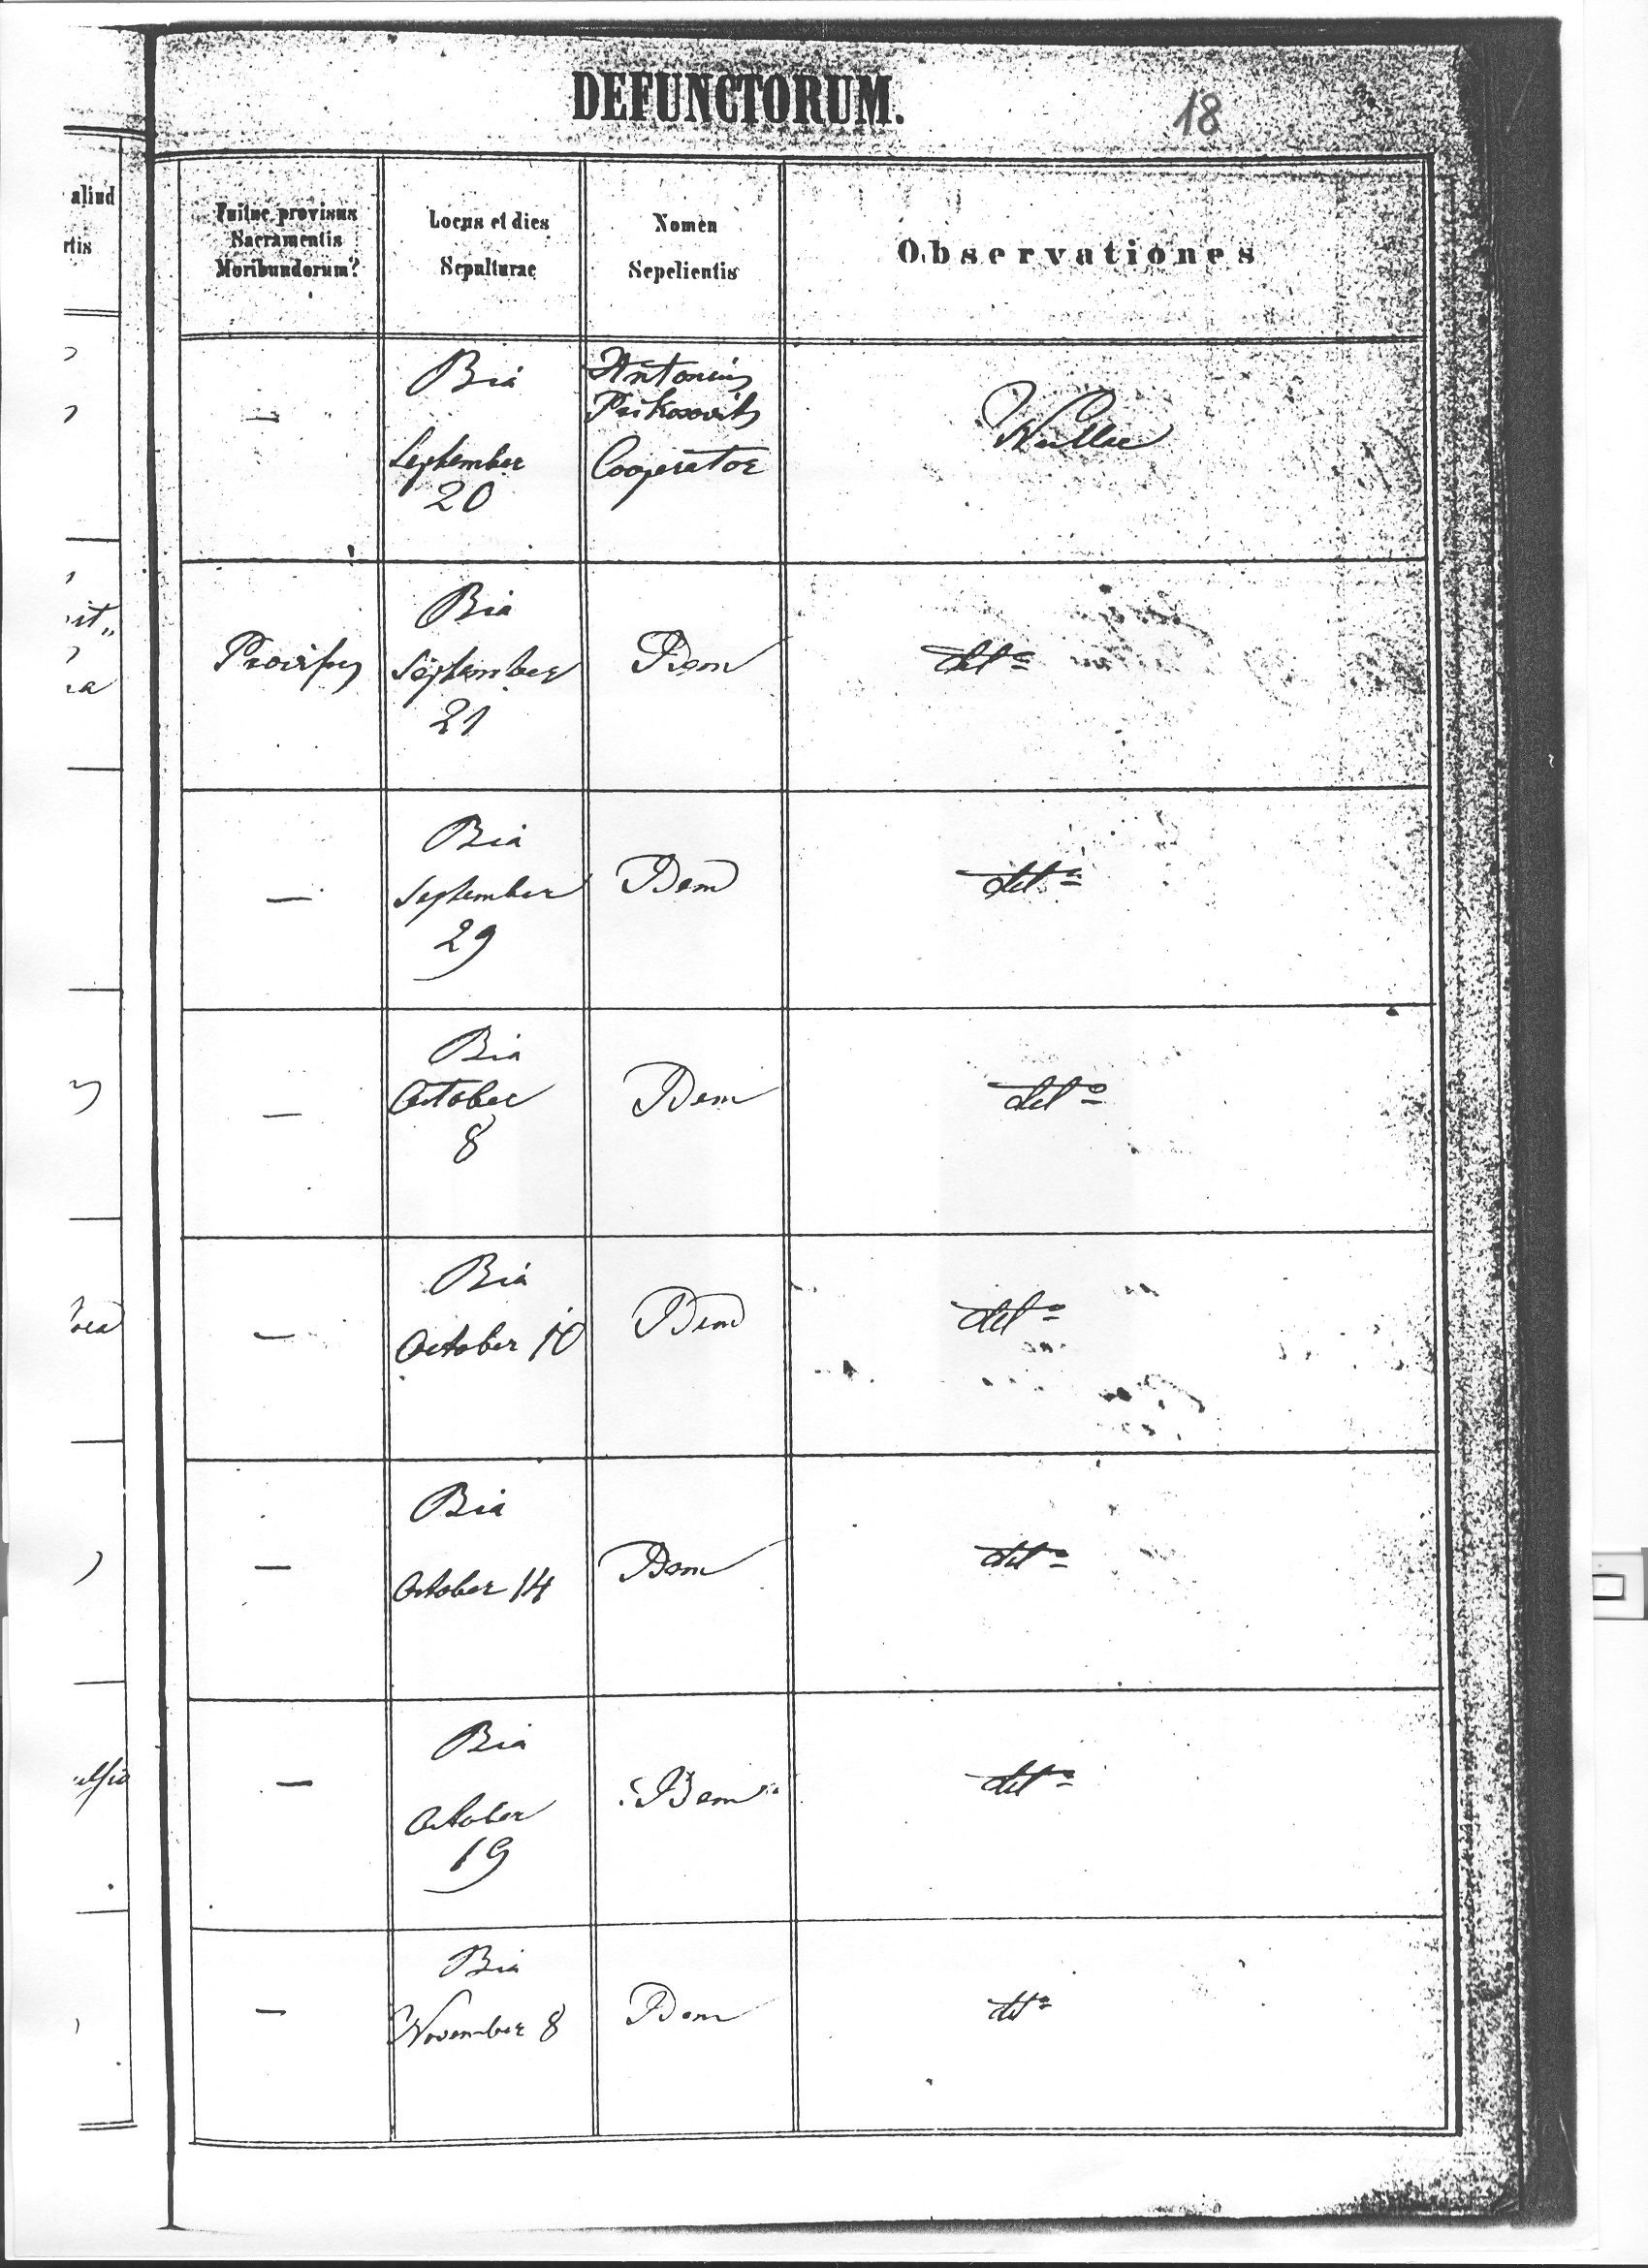 DEFUNCTORUM.
18
aliud
rtis
Fuitne provisus
Sacramentis
Moribundorum?
Locus et dies
Sepulturae
Nomen
Sepelientis
Observationes
—
Bia
September
20
Antonius
Cooperator
Nullae
Provisus
Bia
September
21
Idem
detto
—
Bia
September
29
Idem
detto
—
Bia
October
8
Idem
detto
—
Bia
October 10
Idem
detto
—
Bia
October 14
Idem
detto
—
Bia
October
19
Idem
detto
—
Bia
November 8
Idem
detto